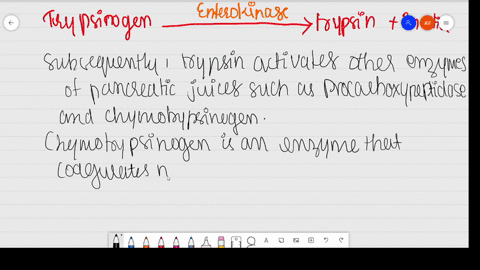 Enterokinase
Trypsinogen → trypsin +
Subsequently, trypsin activates other enzymes
of pancreatic juices such as procarboxypeptidase
and chymotrypsinogen.
Chymotrypsinogen is an enzyme that
coagulates m